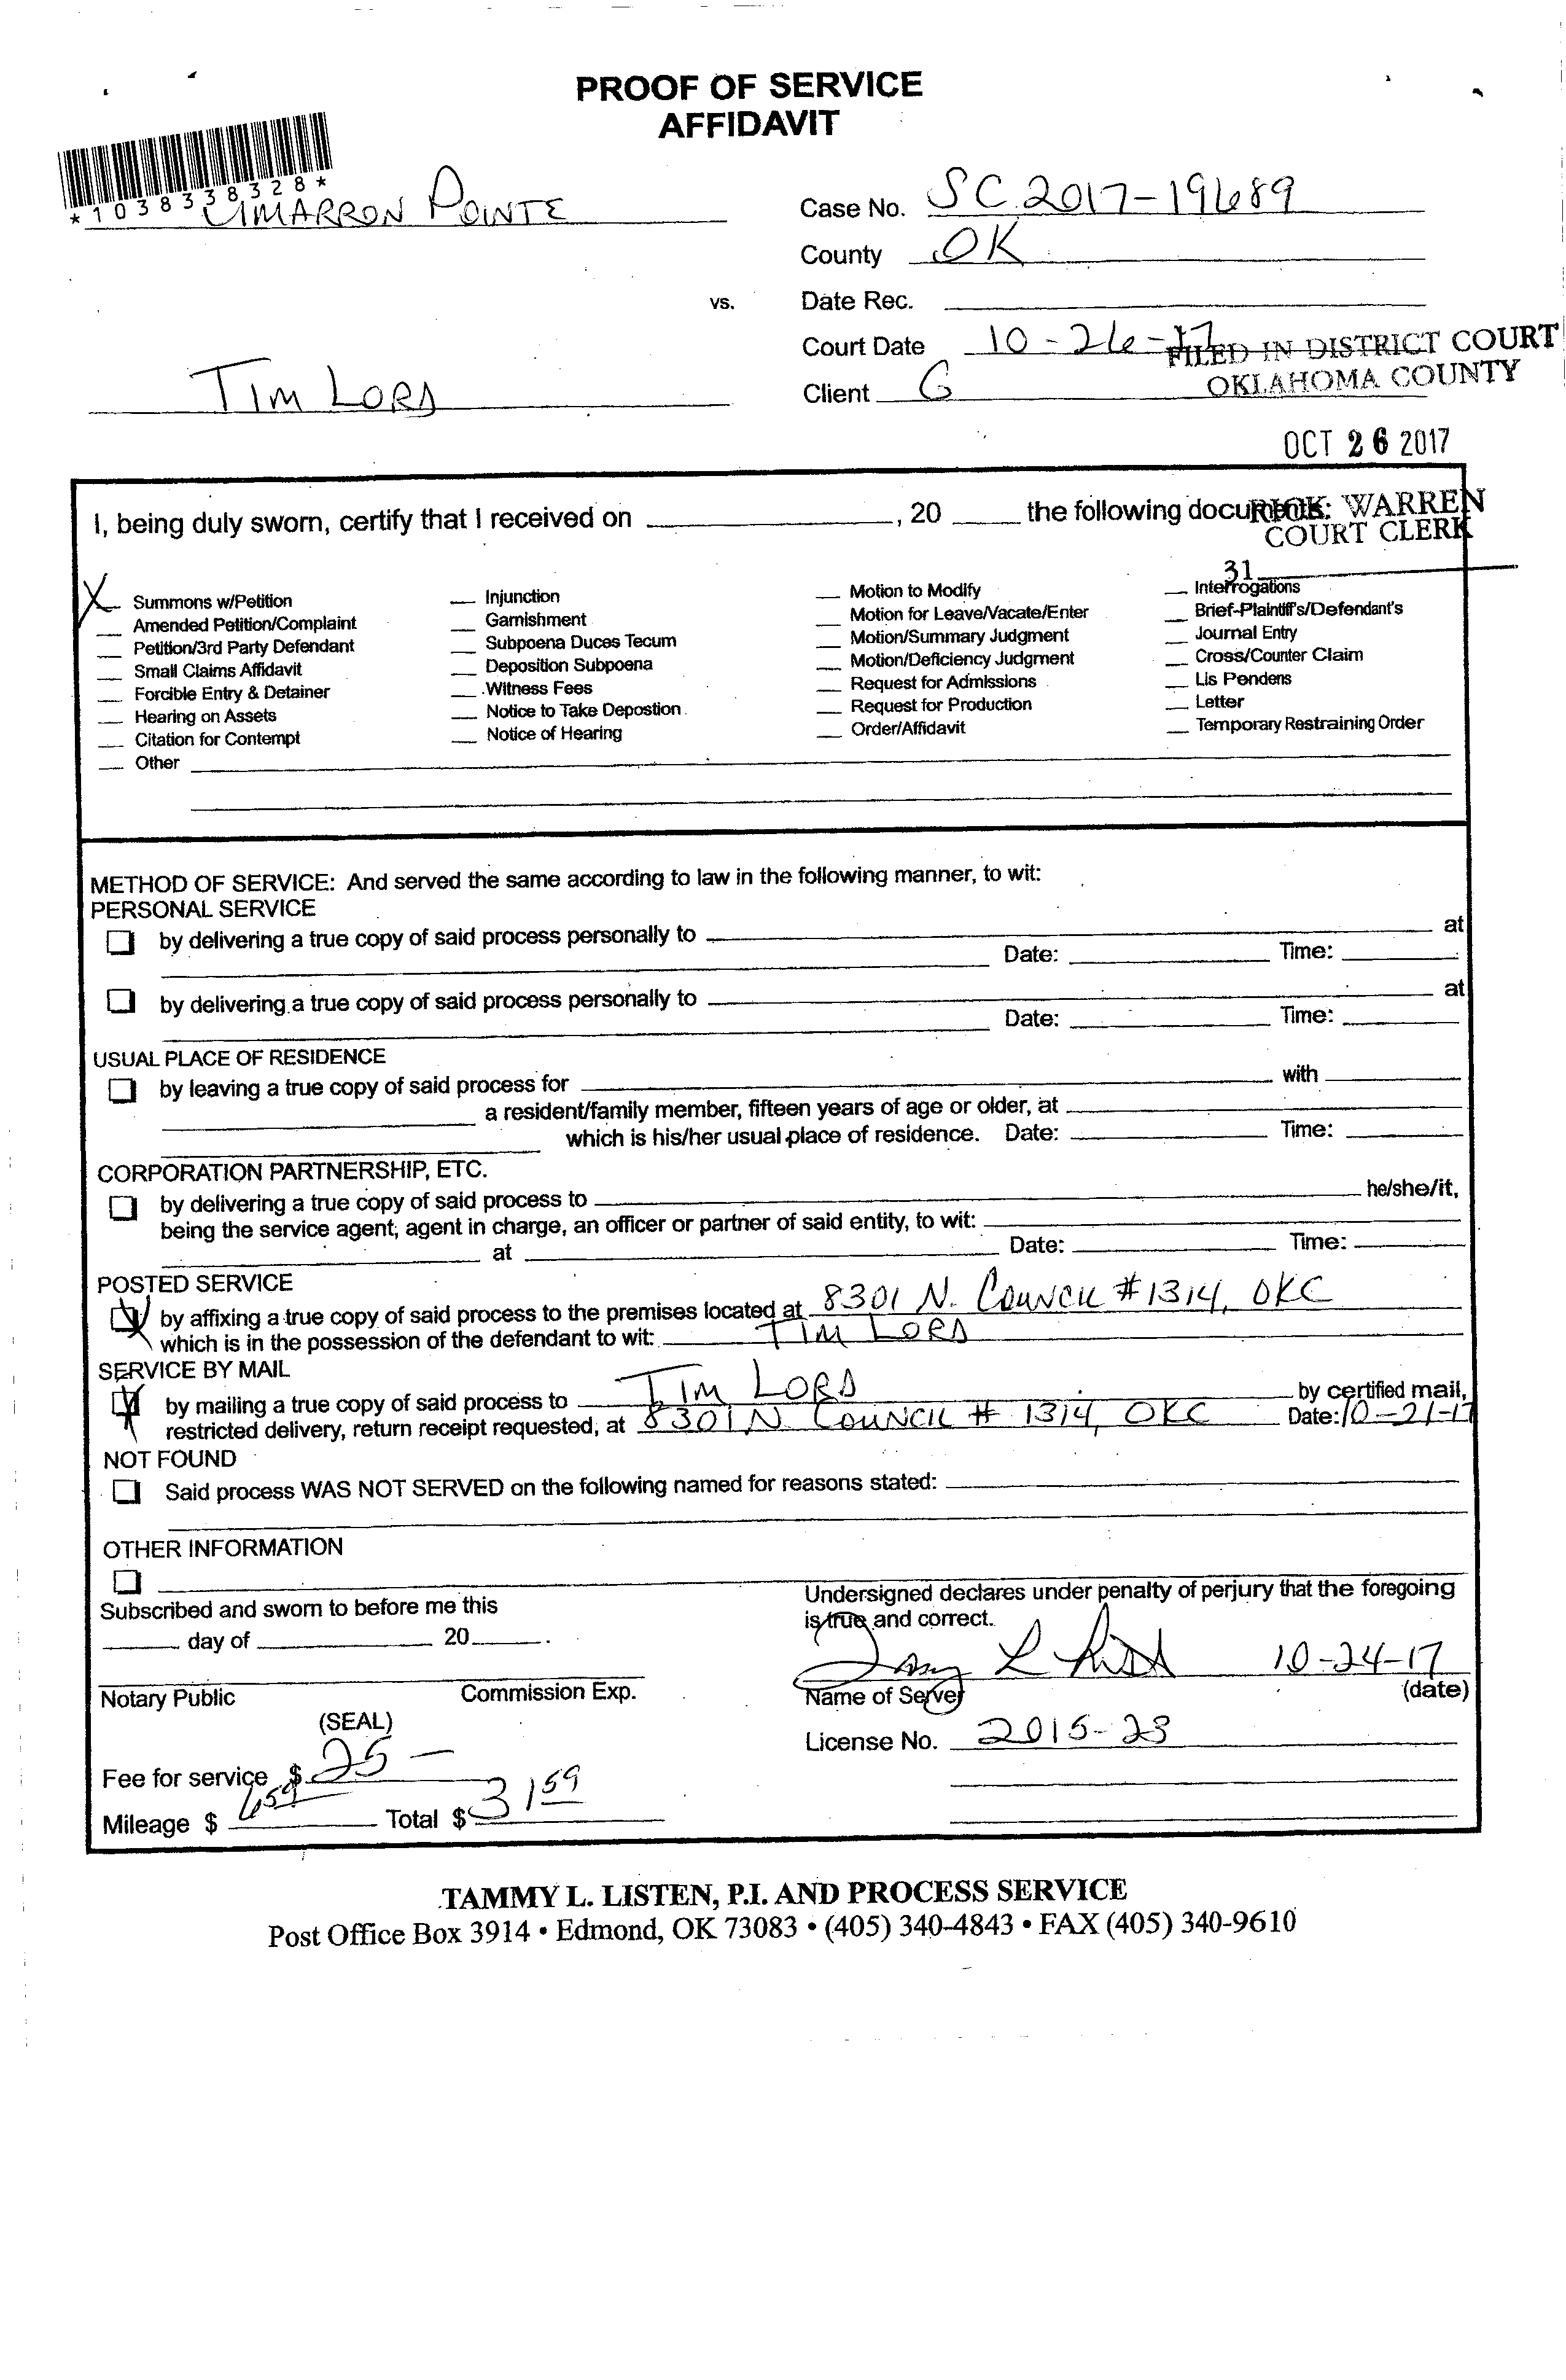 PROOF OF SERVICE
AFFIDAVIT
*1038338328*
CIMARRON POINTE
Case No. SC 2017-19689
County OK
vs.
Date Rec.
Court Date 10-26-17
FILED IN DISTRICT COURT
OKLAHOMA COUNTY
TIM LORD
Client G
OCT 26 2017
I, being duly sworn, certify that I received on ____, 20 ____ the following documents:
RICK WARREN
COURT CLERK
31
X Summons w/Petition
Amended Petition/Complaint
Petition/3rd Party Defendant
Small Claims Affidavit
Forcible Entry & Detainer
Hearing on Assets
Citation for Contempt
Other
Injunction
Garnishment
Subpoena Duces Tecum
Deposition Subpoena
Witness Fees
Notice to Take Depostion
Notice of Hearing
Motion to Modify
Motion for Leave/Vacate/Enter
Motion/Summary Judgment
Motion/Deficiency Judgment
Request for Admissions
Request for Production
Order/Affidavit
Interrogations
Brief-Plaintiff's/Defendant's
Journal Entry
Cross/Counter Claim
Lis Pendens
Letter
Temporary Restraining Order
METHOD OF SERVICE: And served the same according to law in the following manner, to wit:
PERSONAL SERVICE
by delivering a true copy of said process personally to ____ at
Date: ____ Time: ____
by delivering a true copy of said process personally to ____ at
Date: ____ Time: ____
USUAL PLACE OF RESIDENCE
by leaving a true copy of said process for ____ with ____
a resident/family member, fifteen years of age or older, at ____
which is his/her usual place of residence. Date: ____ Time: ____
CORPORATION PARTNERSHIP, ETC.
by delivering a true copy of said process to ____ he/she/it,
being the service agent, agent in charge, an officer or partner of said entity, to wit: ____
at ____ Date: ____ Time: ____
POSTED SERVICE
by affixing a true copy of said process to the premises located at 8301 N. COUNCIL #1314, OKC
which is in the possession of the defendant to wit: TIM LORD
SERVICE BY MAIL
by mailing a true copy of said process to TIM LORD by certified mail,
restricted delivery, return receipt requested, at 8301 N COUNCIL # 1314, OKC Date: 10-21-17
NOT FOUND
Said process WAS NOT SERVED on the following named for reasons stated:
OTHER INFORMATION
Subscribed and sworn to before me this
____ day of ____ 20____.
Undersigned declares under penalty of perjury that the foregoing
is true and correct.
10-24-17
Notary Public Commission Exp.
(SEAL)
Name of Server (date)
License No. 2015-23
Fee for service $ 25 —
Mileage $ 659 Total $ 3159
TAMMY L. LISTEN, P.I. AND PROCESS SERVICE
Post Office Box 3914 • Edmond, OK 73083 • (405) 340-4843 • FAX (405) 340-9610